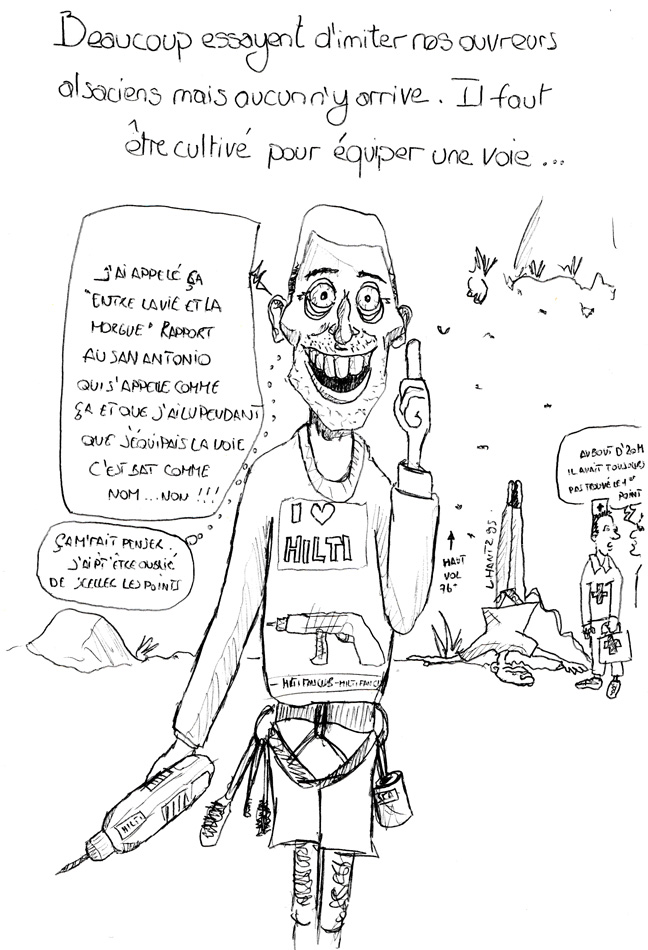 Beaucoup essayent d'imiter nos ouvreurs
alsaciens mais aucun n'y arrive. Il faut
être cultivé pour équiper une voie...
J'AI APPELÉ ÇA
"ENTRE LA VIE ET LA
MORGUE" RAPPORT
AU SAN ANTONIO
QUI S'APPELLE COMME
ÇA ET QUE J'AI LU PENDANT
QUE J'ÉQUIPAIS LA VOIE
C'EST BAT COMME
NOM...NON !!!
ÇA M'FAIT PENSER,
J'AI PT'ÊTRE OUBLIÉ
DE SCELLER LES POINTS
I ♡
HILTI
HILTI
AU BOUT D'20M
IL AVAIT TOUJOURS
PAS TROUVÉ LE 1er
POINT
HAUT
VOL
76°